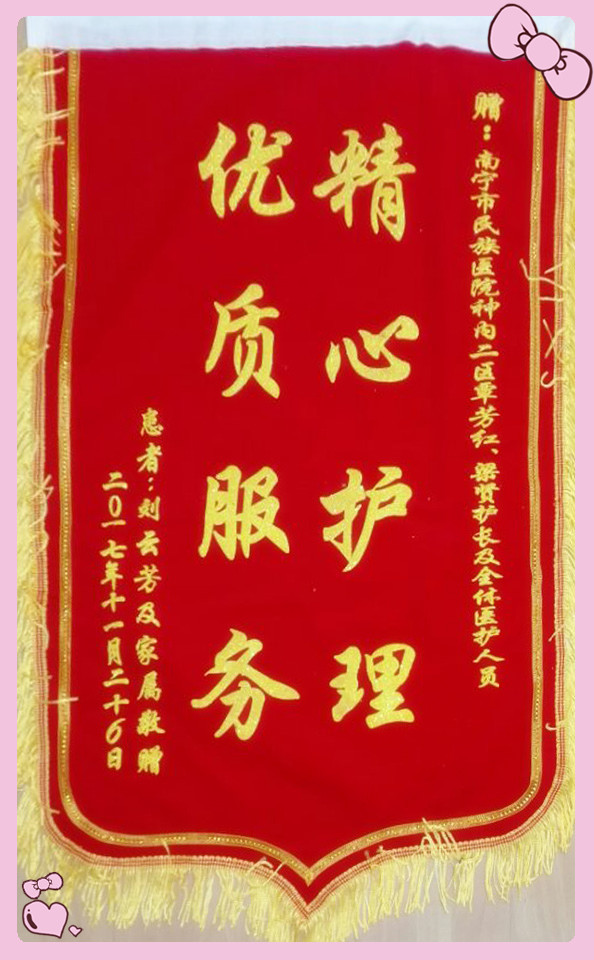 赠：南宁市民族医院神内二区覃芳红、梁贤护长及全体医护人员
精心护理
优质服务
患者：刘云芳及家属敬赠
二〇一七年十一月二十六日